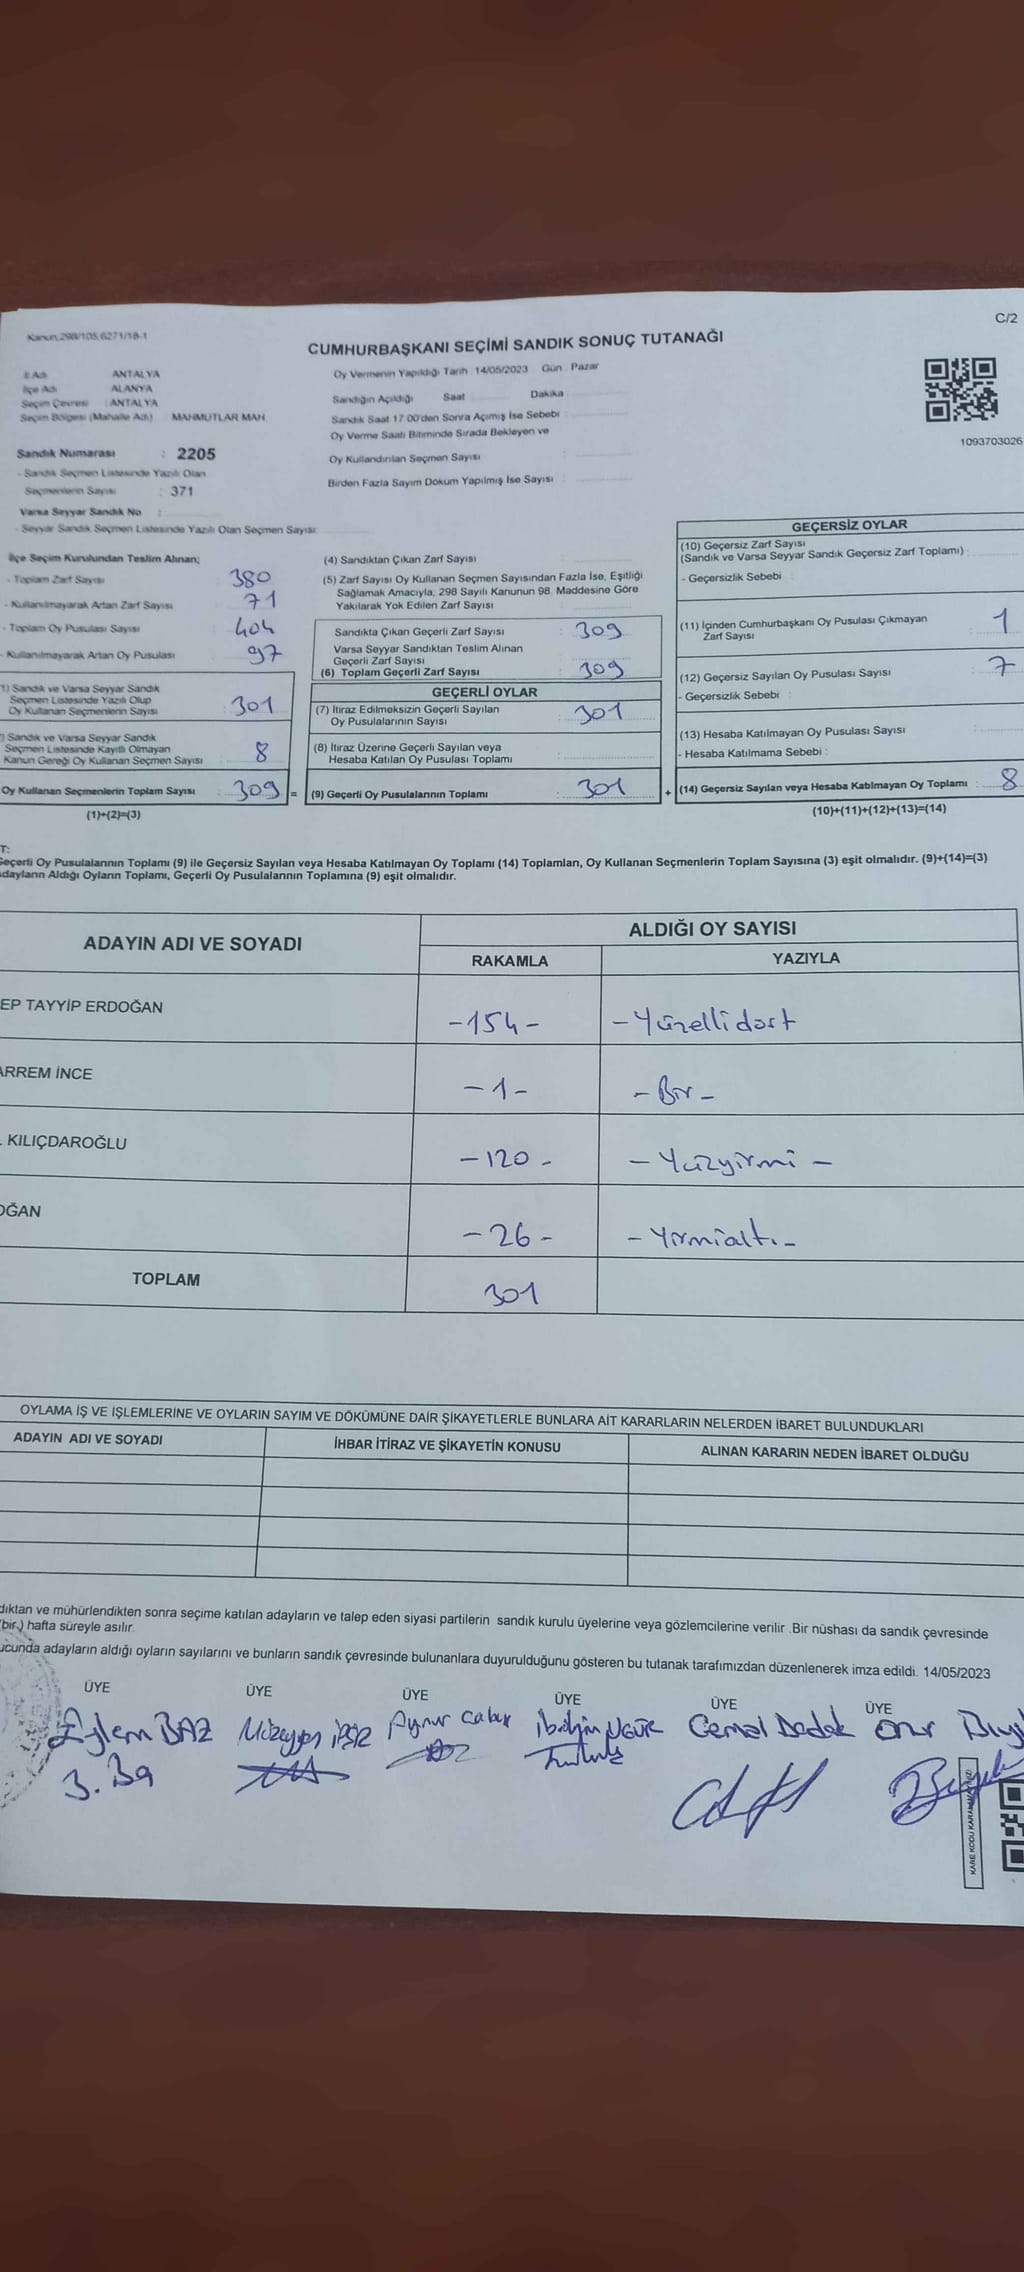 Kanun;298/105,6271/18-1
C/2
CUMHURBAŞKANI SEÇİMİ SANDIK SONUÇ TUTANAĞI
İl Adı ANTALYA
İlçe Adı ALANYA
Seçim Çevresi : ANTALYA
Seçim Bölgesi (Mahalle Adı) MAHMUTLAR MAH.
Sandık Numarası : 2205
- Sandık Seçmen Listesinde Yazılı Olan
Seçmenlerin Sayısı : 371
Varsa Seyyar Sandık No :
- Seyyar Sandık Seçmen Listesinde Yazılı Olan Seçmen Sayısı:
Oy Vermenin Yapıldığı Tarih : 14/05/2023 Gün : Pazar
Sandığın Açıldığı Saat Dakika
Sandık Saat 17.00'den Sonra Açımış İse Sebebi :
Oy Verme Saati Bitiminde Sırada Bekleyen ve
Oy Kullandırılan Seçmen Sayısı :
Birden Fazla Sayım Döküm Yapılmış İse Sayısı :
1093703026
İlçe Seçim Kurulundan Teslim Alınan;
- Toplam Zarf Sayısı 380
- Kullanılmayarak Artan Zarf Sayısı 71
- Toplam Oy Pusulası Sayısı 404
- Kullanılmayarak Artan Oy Pusulası 97
1) Sandık ve Varsa Seyyar Sandık
Seçmen Listesinde Yazılı Olup
Oy Kullanan Seçmenlerin Sayısı : 301
) Sandık ve Varsa Seyyar Sandık
Seçmen Listesinde Kayıtlı Olmayan
Kanun Gereği Oy Kullanan Seçmen Sayısı 8
Oy Kullanan Seçmenlerin Toplam Sayısı : 309 =
(1)+(2)=(3)
(4) Sandıktan Çıkan Zarf Sayısı :
(5) Zarf Sayısı Oy Kullanan Seçmen Sayısından Fazla İse, Eşitliği
Sağlamak Amacıyla, 298 Sayılı Kanunun 98. Maddesine Göre
Yakılarak Yok Edilen Zarf Sayısı :
Sandıkta Çıkan Geçerli Zarf Sayısı : 309
Varsa Seyyar Sandıktan Teslim Alınan
Geçerli Zarf Sayısı :
(6) Toplam Geçerli Zarf Sayısı : 309
GEÇERLİ OYLAR
(7) İtiraz Edilmeksizin Geçerli Sayılan
Oy Pusulalarının Sayısı : 301
(8) İtiraz Üzerine Geçerli Sayılan veya
Hesaba Katılan Oy Pusulası Toplamı :
(9) Geçerli Oy Pusulalarının Toplamı : 301 +
GEÇERSİZ OYLAR
(10) Geçersiz Zarf Sayısı
(Sandık ve Varsa Seyyar Sandık Geçersiz Zarf Toplamı) :
- Geçersizlik Sebebi :
(11) İçinden Cumhurbaşkanı Oy Pusulası Çıkmayan
Zarf Sayısı : 1
(12) Geçersiz Sayılan Oy Pusulası Sayısı : 7
- Geçersizlik Sebebi :
(13) Hesaba Katılmayan Oy Pusulası Sayısı :
- Hesaba Katılmama Sebebi :
(14) Geçersiz Sayılan veya Hesaba Katılmayan Oy Toplamı : 8
(10)+(11)+(12)+(13)=(14)
T:
Geçerli Oy Pusulalarının Toplamı (9) ile Geçersiz Sayılan veya Hesaba Katılmayan Oy Toplamı (14) Toplamları, Oy Kullanan Seçmenlerin Toplam Sayısına (3) eşit olmalıdır. (9)+(14)=(3)
dayların Aldığı Oyların Toplamı, Geçerli Oy Pusulalarının Toplamına (9) eşit olmalıdır.
ADAYIN ADI VE SOYADI ALDIĞI OY SAYISI
RAKAMLA YAZIYLA
EP TAYYİP ERDOĞAN -154- -Yüzellidört
ARREM İNCE -1- -Bir-
. KILIÇDAROĞLU -120- -Yüzyirmi-
OĞAN -26- -Yirmialtı-
TOPLAM 301
OYLAMA İŞ VE İŞLEMLERİNE VE OYLARIN SAYIM VE DÖKÜMÜNE DAİR ŞİKAYETLERLE BUNLARA AİT KARARLARIN NELERDEN İBARET BULUNDUKLARI
ADAYIN ADI VE SOYADI İHBAR İTİRAZ VE ŞİKAYETİN KONUSU ALINAN KARARIN NEDEN İBARET OLDUĞU
dıktan ve mühürlendikten sonra seçime katılan adayların ve talep eden siyasi partilerin sandık kurulu üyelerine veya gözlemcilerine verilir .Bir nüshası da sandık çevresinde
bir.) hafta süreyle asılır.
ucunda adayların aldığı oyların sayılarını ve bunların sandık çevresinde bulunanlara duyurulduğunu gösteren bu tutanak tarafımızdan düzenlenerek imza edildi. 14/05/2023
ÜYE ÜYE ÜYE ÜYE ÜYE ÜYE
Eylem BAZ Müzeyyen Aynur İbrahim UĞUR Cemal Dadak Onur
KARE KODU KARALAMAYINIZ!